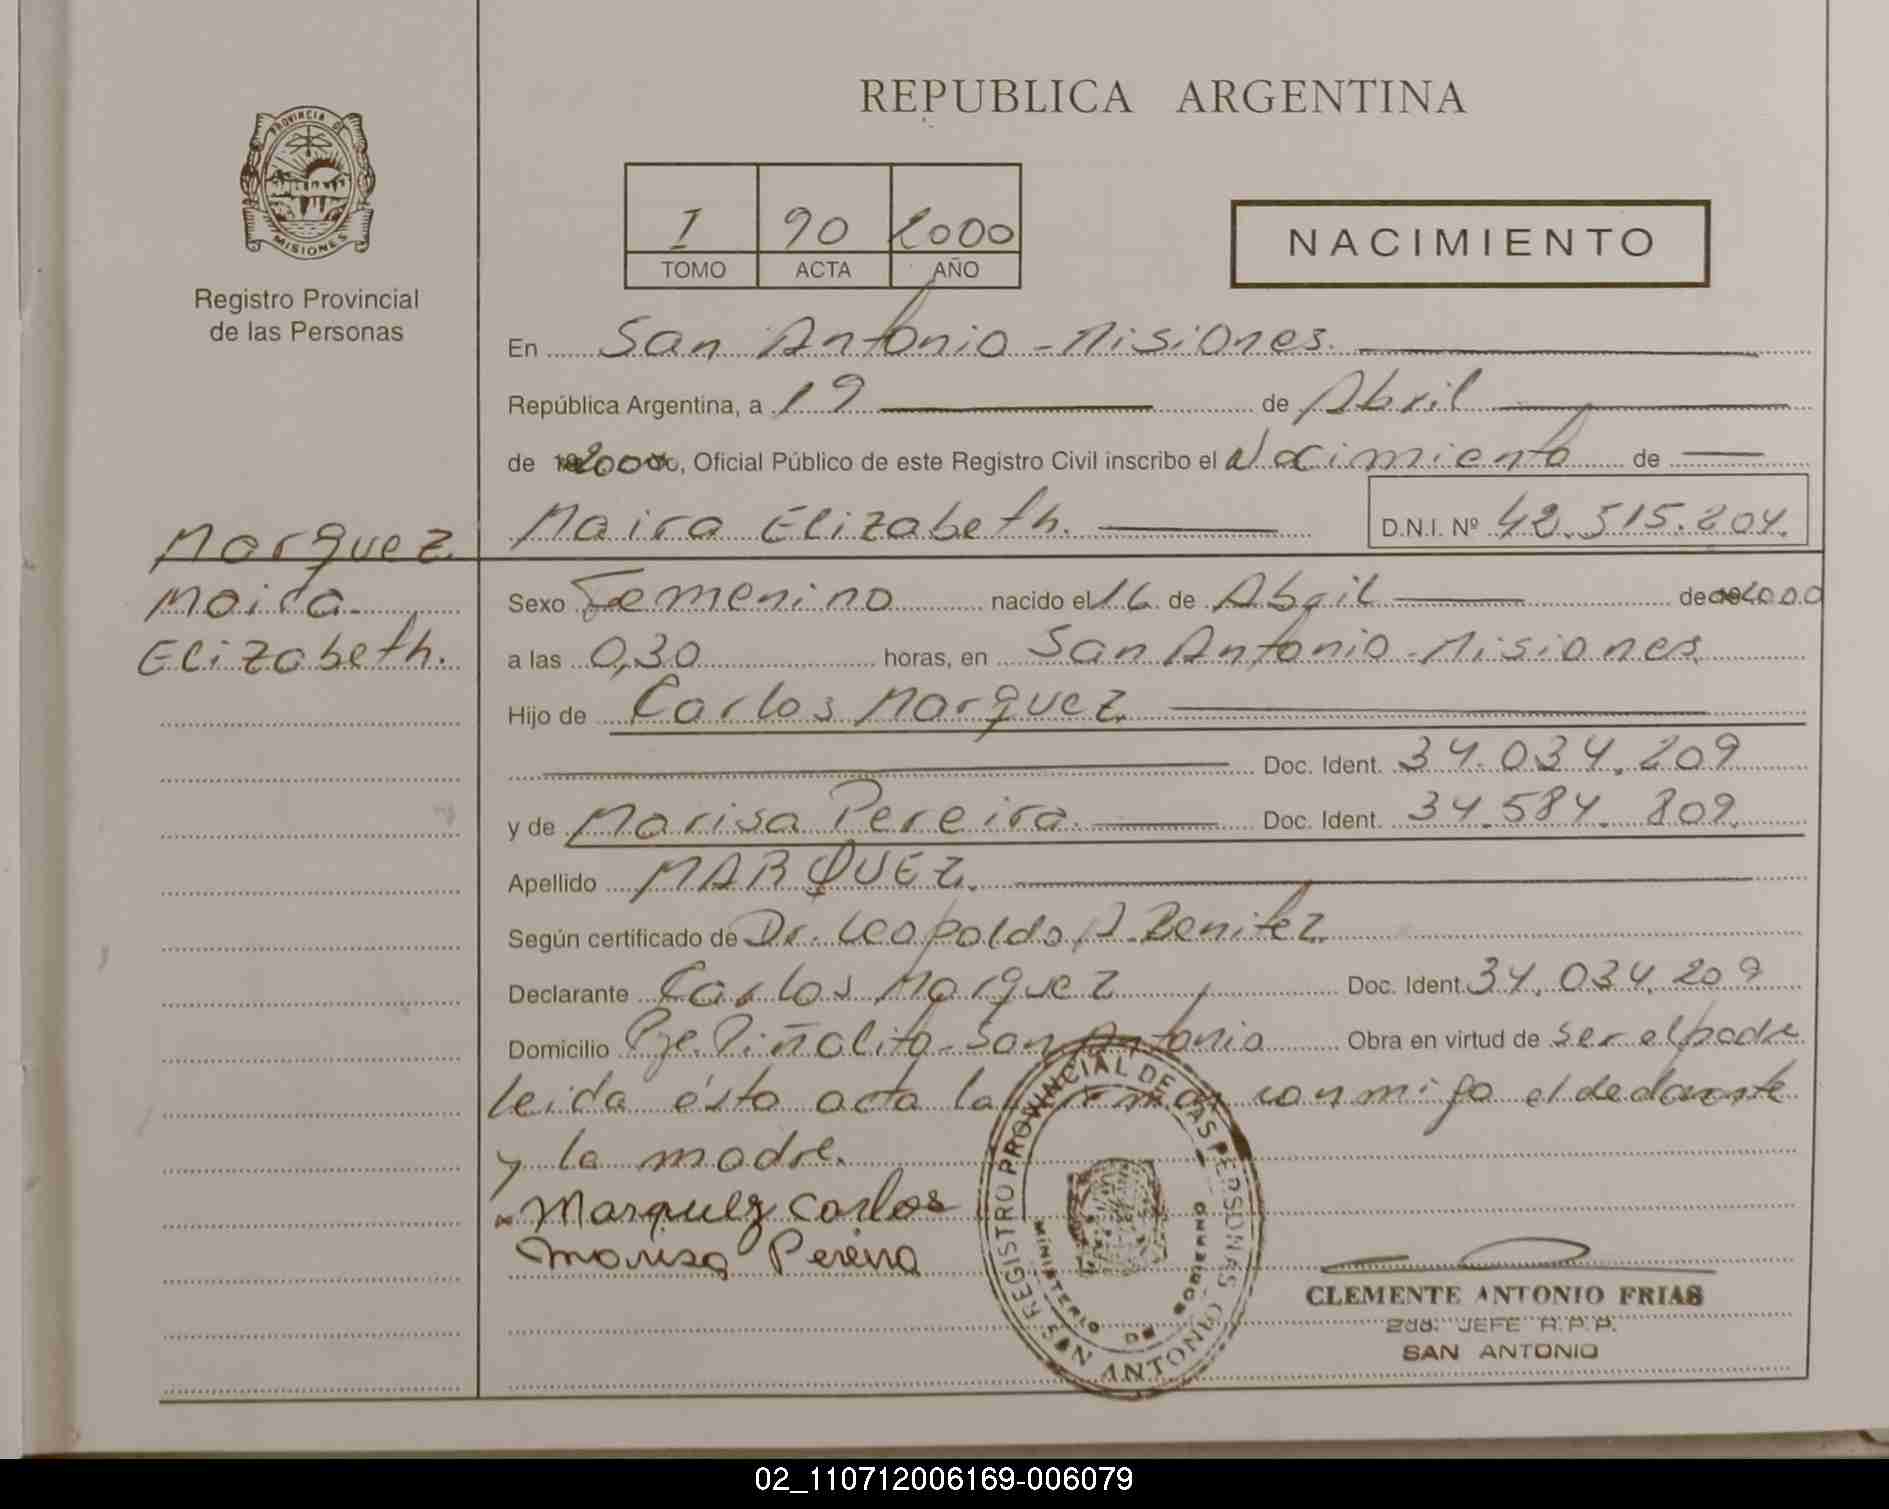 REPUBLICA ARGENTINA
PROVINCIA DE MISIONES
Registro Provincial
de las Personas
I 90 2000
TOMO ACTA AÑO
NACIMIENTO
En San Antonio - Misiones.
República Argentina, a 19 de Abril
de 2000, Oficial Público de este Registro Civil inscribo el Nacimiento de
Maira Elizabeth. D.N.I. Nº 42.515.204.
Marquez
Maira
Elizabeth.
Sexo Femenino nacido el 16 de Abril de 2000
a las 0,30 horas, en San Antonio - Misiones
Hijo de Carlos Marquez
Doc. Ident. 34.034.209
y de Marisa Pereira. Doc. Ident. 34.584.809.
Apellido MARQUEZ.
Según certificado de Dr. Leopoldo A. Benitez
Declarante Carlos Marquez Doc. Ident. 34.034.209
Domicilio Pje. Piñalito - San Antonio Obra en virtud de ser el padre
leida ésta acta la firman conmigo el declarante
y la madre.
Marquez Carlos
Marisa Pereira
REGISTRO PROVINCIAL DE LAS PERSONAS
MINISTERIO DE GOBIERNO
SAN ANTONIO
CLEMENTE ANTONIO FRIAS
2do. JEFE R.P.P.
SAN ANTONIO
02_110712006169-006079